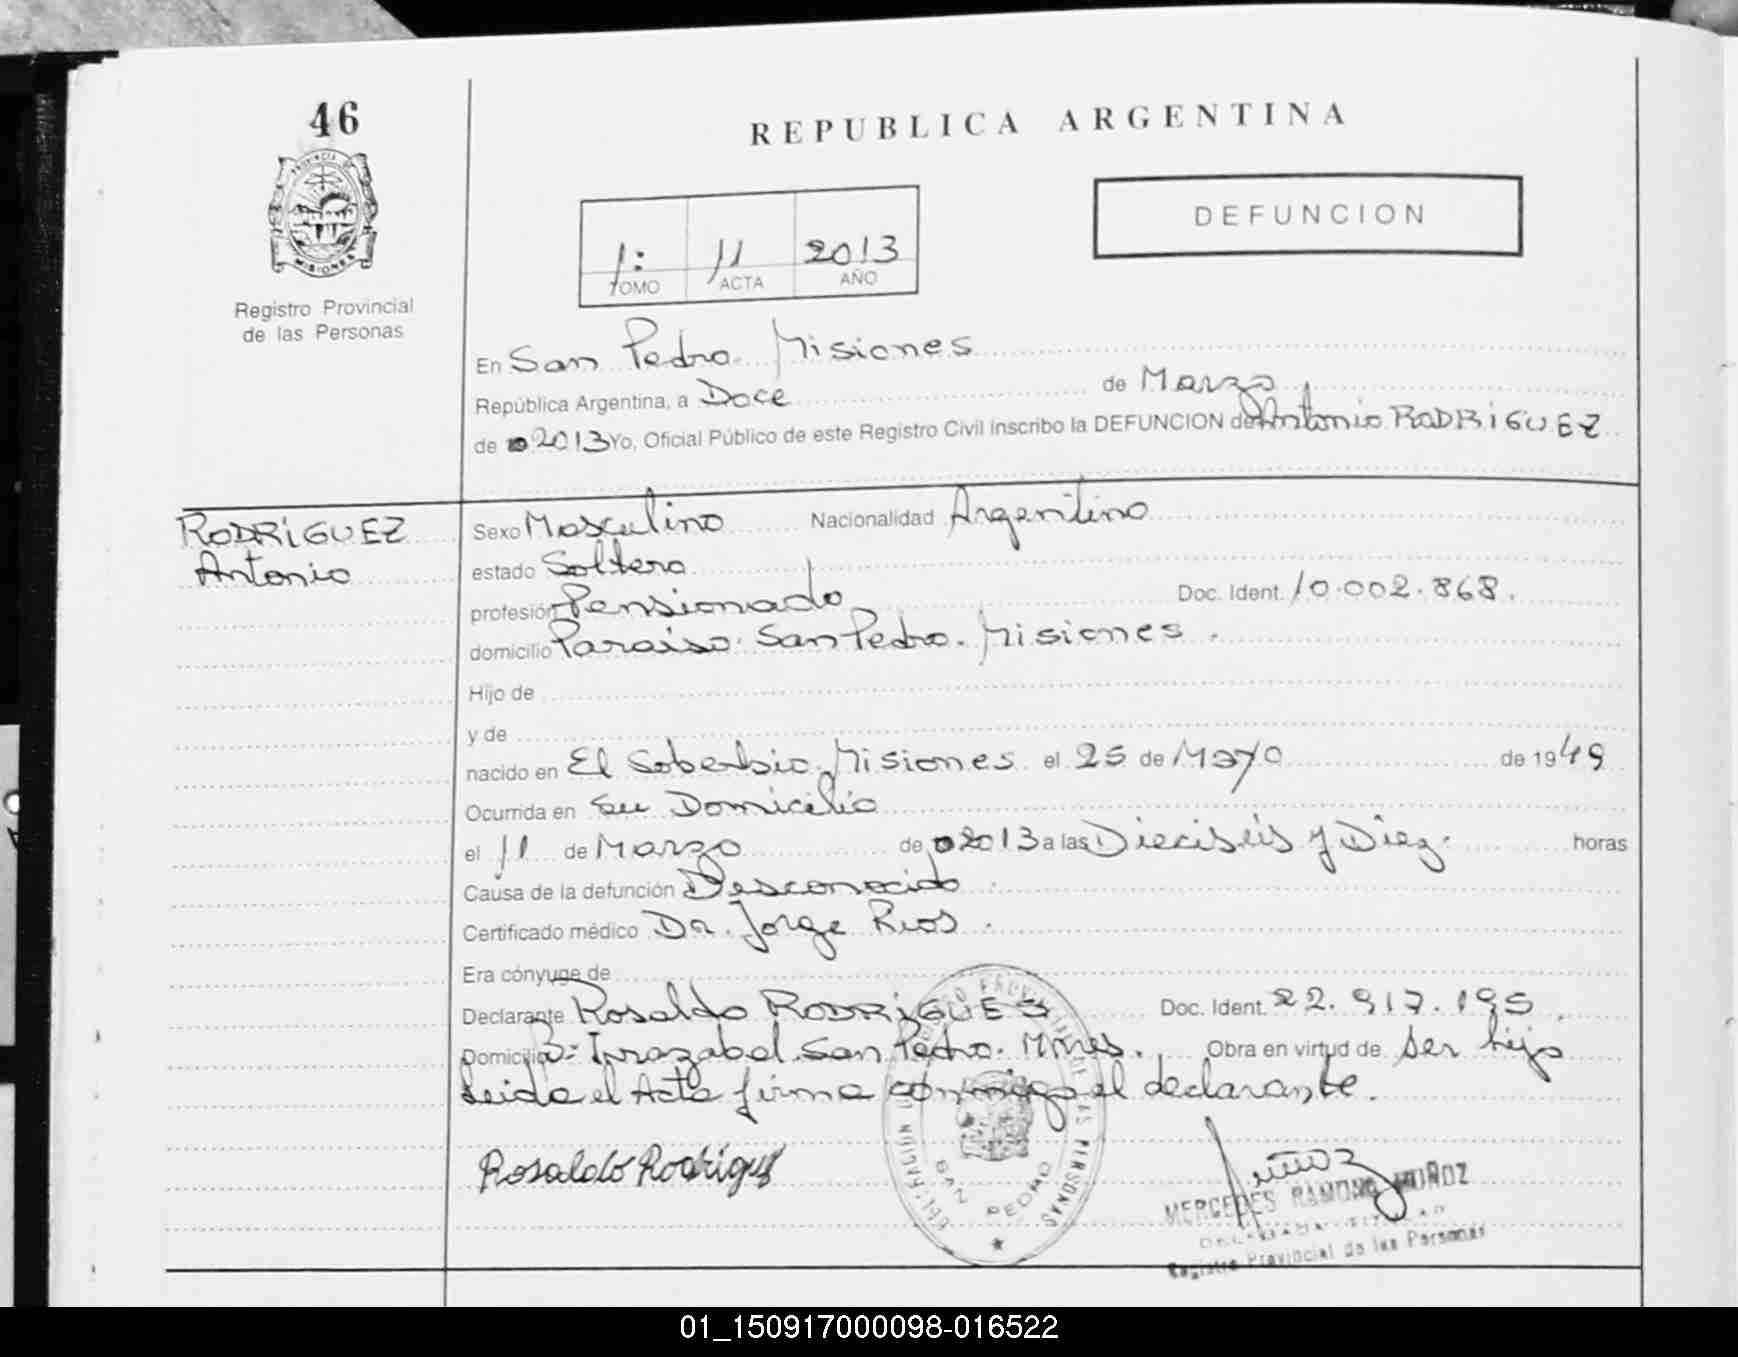 46
REPUBLICA ARGENTINA
PROVINCIA DE
MISIONES
Registro Provincial
de las Personas
DEFUNCION
1: 11 2013
TOMO ACTA AÑO
En San Pedro. Misiones
República Argentina, a Doce de Marzo
de 2013 Yo, Oficial Público de este Registro Civil inscribo la DEFUNCION de Antonio RODRIGUEZ
RODRIGUEZ
Antonio
Sexo Masculino Nacionalidad Argentino
estado Soltero
profesión Pensionado Doc. Ident. 10.002.868.
domicilio Paraiso. San Pedro. Misiones.
Hijo de
y de
nacido en El Soberbio. Misiones el 25 de Mayo de 1949
Ocurrida en Su Domicilio
el 11 de Marzo de 2013 a las Dieciseis y Diez. horas
Causa de la defunción Desconocido.
Certificado médico Dr. Jorge Rios.
Era cónyuge de
Declarante Rosaldo RODRIGUES Doc. Ident. 22.917.195.
Domicilio B: Irrazabal. San Pedro. Mnes. Obra en virtud de ser hijo
Leida el Acta firma conmigo el declarante.
Rosaldo Rodrigues
REGISTRO PROVINCIAL DE LAS PERSONAS
SAN PEDRO
MERCEDES RAMONA MUÑOZ
Registro Provincial de las Personas
01_150917000098-016522